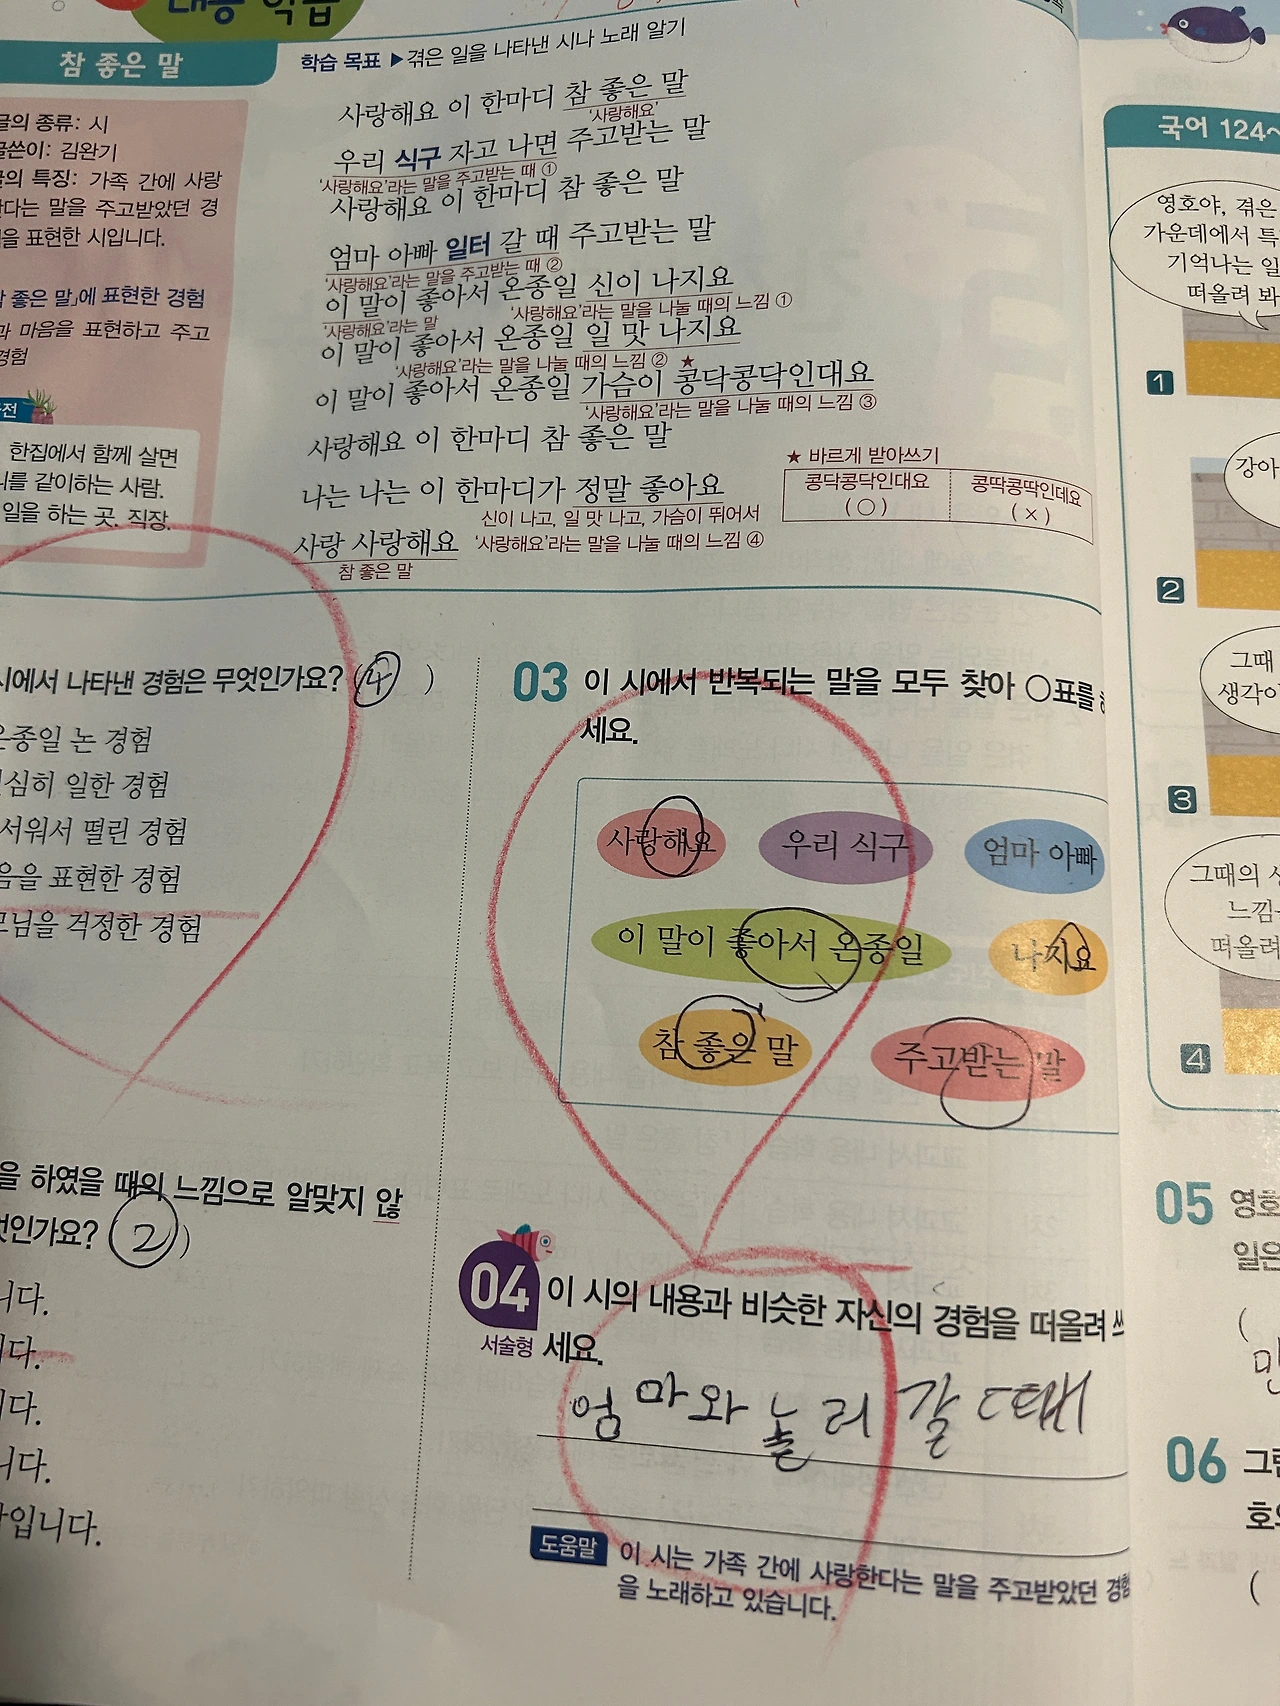 학습
참 좋은 말
학습 목표 ▶겪은 일을 나타낸 시나 노래 알기
글의 종류: 시
글쓴이: 김완기
글의 특징: 가족 간에 사랑
한다는 말을 주고받았던 경
을 표현한 시입니다.
좋은 말」에 표현한 경험
과 마음을 표현하고 주고
경험
한집에서 함께 살면
니를 같이하는 사람.
일을 하는 곳. 직장.
사랑해요 이 한마디 참 좋은 말
'사랑해요'
우리 식구 자고 나면 주고받는 말
'사랑해요'라는 말을 주고받는 때 ①
사랑해요 이 한마디 참 좋은 말
엄마 아빠 일터 갈 때 주고받는 말
'사랑해요'라는 말을 주고받는 때 ②
이 말이 좋아서 온종일 신이 나지요
'사랑해요'라는 말 '사랑해요'라는 말을 나눌 때의 느낌 ①
이 말이 좋아서 온종일 일 맛 나지요
'사랑해요'라는 말을 나눌 때의 느낌 ② ★
이 말이 좋아서 온종일 가슴이 콩닥콩닥인대요
'사랑해요'라는 말을 나눌 때의 느낌 ③
사랑해요 이 한마디 참 좋은 말
나는 나는 이 한마디가 정말 좋아요
신이 나고, 일 맛 나고, 가슴이 뛰어서
사랑 사랑해요 '사랑해요'라는 말을 나눌 때의 느낌 ④
참 좋은 말
★ 바르게 받아쓰기
콩닥콩닥인대요 콩딱콩딱인데요
(○) (×)
시에서 나타낸 경험은 무엇인가요? (4)
온종일 논 경험
심히 일한 경험
서워서 떨린 경험
음을 표현한 경험
모님을 걱정한 경험
을 하였을 때의 느낌으로 알맞지 않
엇인가요? (2)
니다.
다.
니다.
니다.
입니다.
03 이 시에서 반복되는 말을 모두 찾아 ○표를 하
세요.
사랑해요 우리 식구 엄마 아빠
이 말이 좋아서 온종일 나지요
참 좋은 말 주고받는 말
04 이 시의 내용과 비슷한 자신의 경험을 떠올려 쓰
서술형 세요.
엄마와 놀러 갈 때
도움말 이 시는 가족 간에 사랑한다는 말을 주고받았던 경험
을 노래하고 있습니다.
국어 124~
영호야, 겪은
가운데에서 특
기억나는 일
떠올려 봐
1
강아
2
그때
생각이
3
그때의
느낌
떠올려
4
05 영호
일은
(
민
06 그런
호의
(